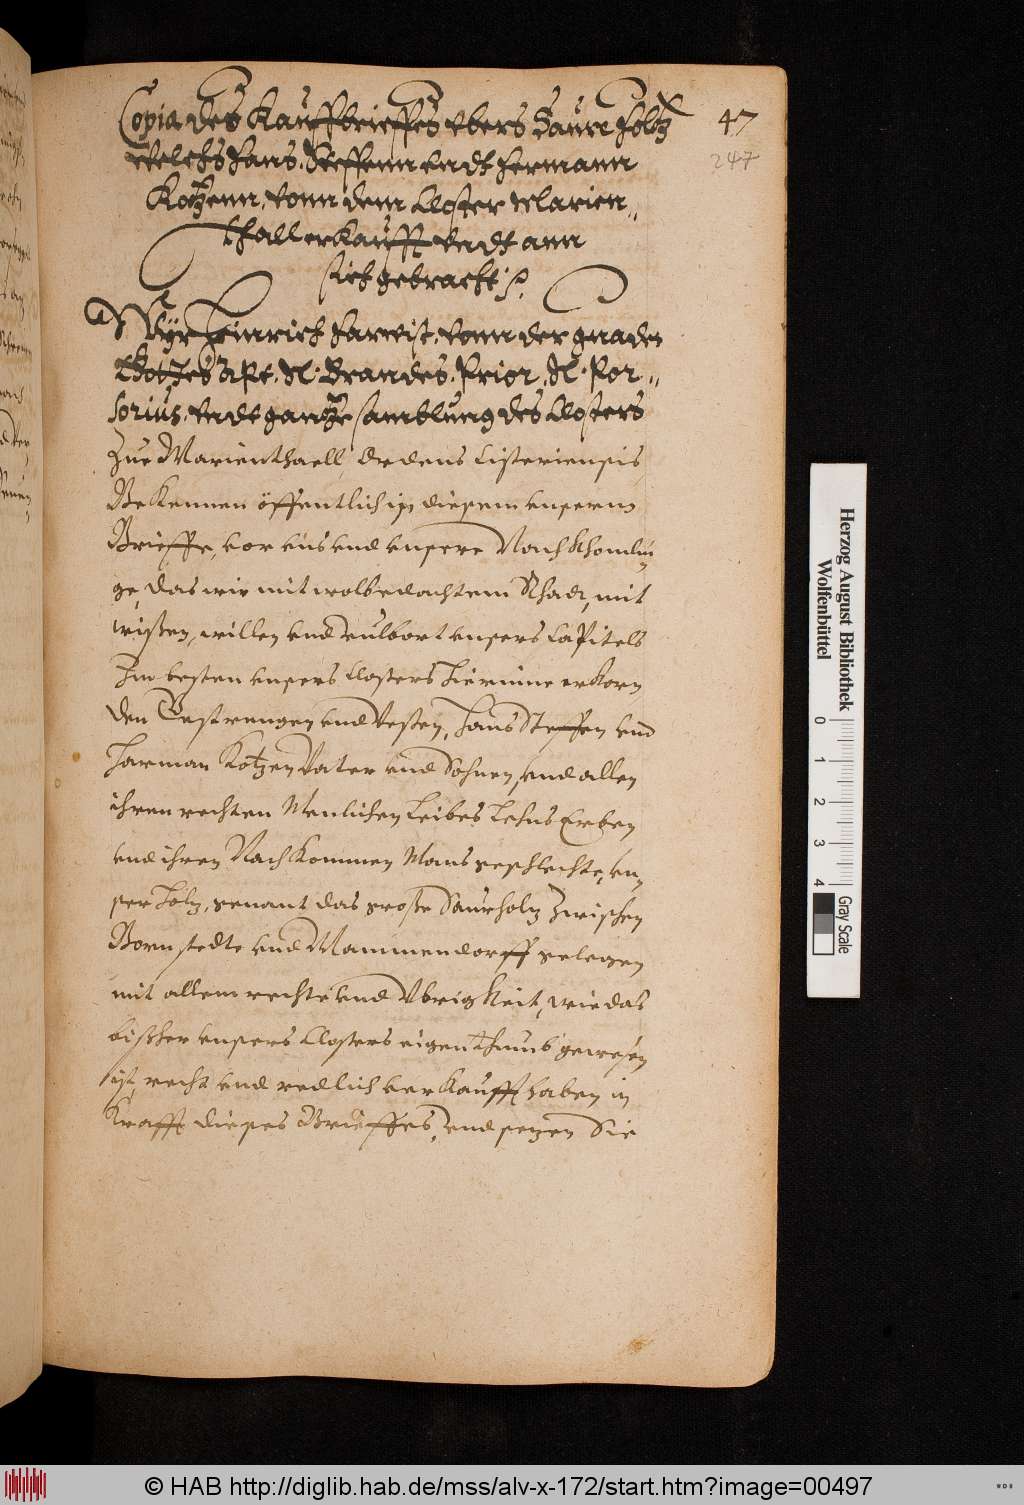 Copia des Kauffbrieffes vbers Saure holtz
welchs Hans, Steffenn vndt Hermann
Kotzenn, vonn dem Closter Marien„
thall erkaufft vndt ann
sich gebracht
47
247
Wyr Heinrich Harwist, vonn der gnaden
Gottes Apt. N. Brandes, Prior, N. Por„
sorius, vndt gantze samblung des Closters
Zue Marienthaell, Ordens Cisteriensis
Bekennen öffentlich in diesem vnserm
Brieffe, vor vns vnd vnsere Nachkhomlin
ge, das wir mit wolbedachtem Rhadt, mit
wissen, willen vnd vulbort vnsers Capitels
Zum besten vnsers Closters hierinne erkorn
den Gestrengen vnd Vesten, Hans Steffen vnd
Harman Kotzen Vater vnd Sohnen, vnd allen
ihren rechten Menlichen Leibes Lehns Erben
vnd ihren Nachkommen Mans geschlechte, vn
ser Holtz, genant das grosse Saureholtz Zwischen
Bornstedte vnd Mammendorff gelegen
mit allem rechte vnd Vbrigkeit, wie das
bissher vnsers Closters eigenthumb gewesen
ist, recht vnd redlich verkaufft haben in
Krafft dieses Brieffes, vnd setzen Sie
Herzog August Bibliothek
Wolfenbüttel
0 1 2 3 4
Gray Scale
© HAB http://diglib.hab.de/mss/alv-x-172/start.htm?image=00497